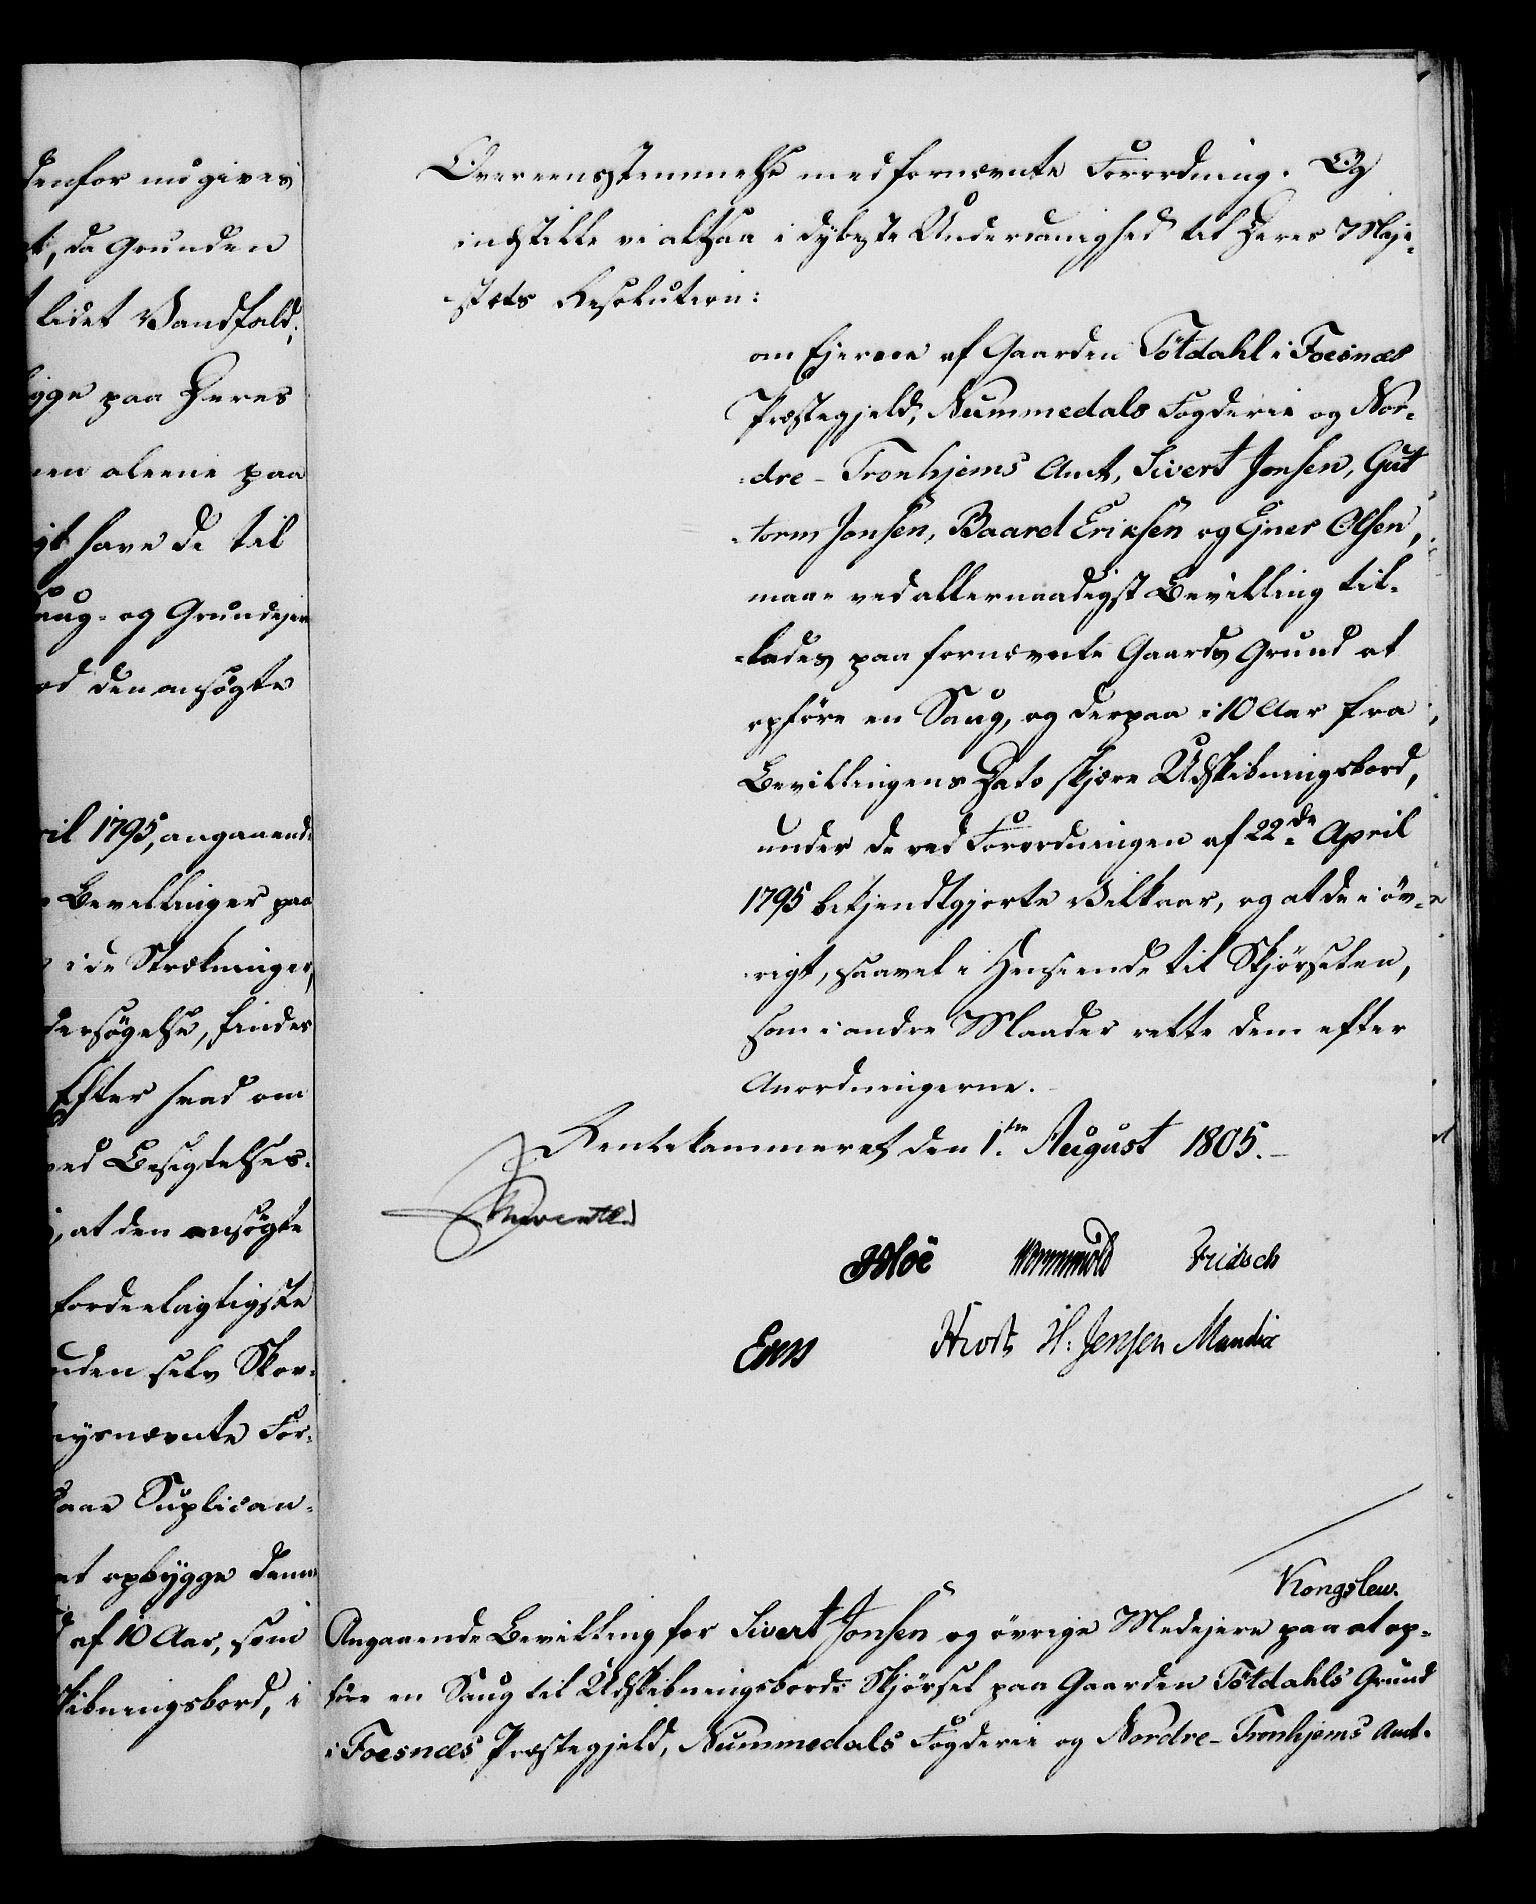 denfor nu gives
t, da Grunden
lidet Vandfald,
ygge paa Deres
en alene paa
gt have de til
aug- og Grundejer
od den ansøgte
ril 1795, angaaende
Bevillinger paa
i de Strækninger,
dersøgelse, findes
Efter hvad om
ved Besigtelses-
, at den ansøgte
fordeelagtigste
nden selv Skov-
nysnævnte For-
kaar Suplican-
at opbygge denne
af 10 Aar, som
kibningsbord, i
Overeensstemmelse med fornævnte Forordning. Og
indstille vi altsaa i dybeste Underdanighed til Deres Maje-
-stæts Resolution:
om Ejerne af Gaarden Tötdahl i Foesnæs
Præstegjeld, Nummedals Fogderie og Nor-
-dre-Tronhjems Amt, Sivert Jonsen, Gut
-torm Jonsen, Baard Eriksen og Ejner Olsen,
maae ved allernaadigst Bevilling til-
-lades paa fornævnte Gaards Grund at
opföre en Saug, og derpaa i 10 Aar fra
Bevillingens Dato skjære Udskibningsbord,
under de ved Forordningen af 22de April
1795 bekjendtgjorte Vilkaar, og at de i öv-
-rigt, saavel i Henseende til Skjörselen,
som i andre Maader rette dem efter
Anordningerne.
Rentekammeret den 1ste August 1805.
Reventlow
Moë Wormskiold Fridsch
Eers Hvorts H. Jensen Mandix
Kongslew.
Angaaende Bevilling for Sivert Jonsen og övrige Medejere paa at op-
före en Saug til Udskibningsbords Skjörsel paa Gaarden Tötdahls Grund
i Foesnæs Præstegjeld, Nummedals Fogderie og Nordre-Tronhjems Amt.